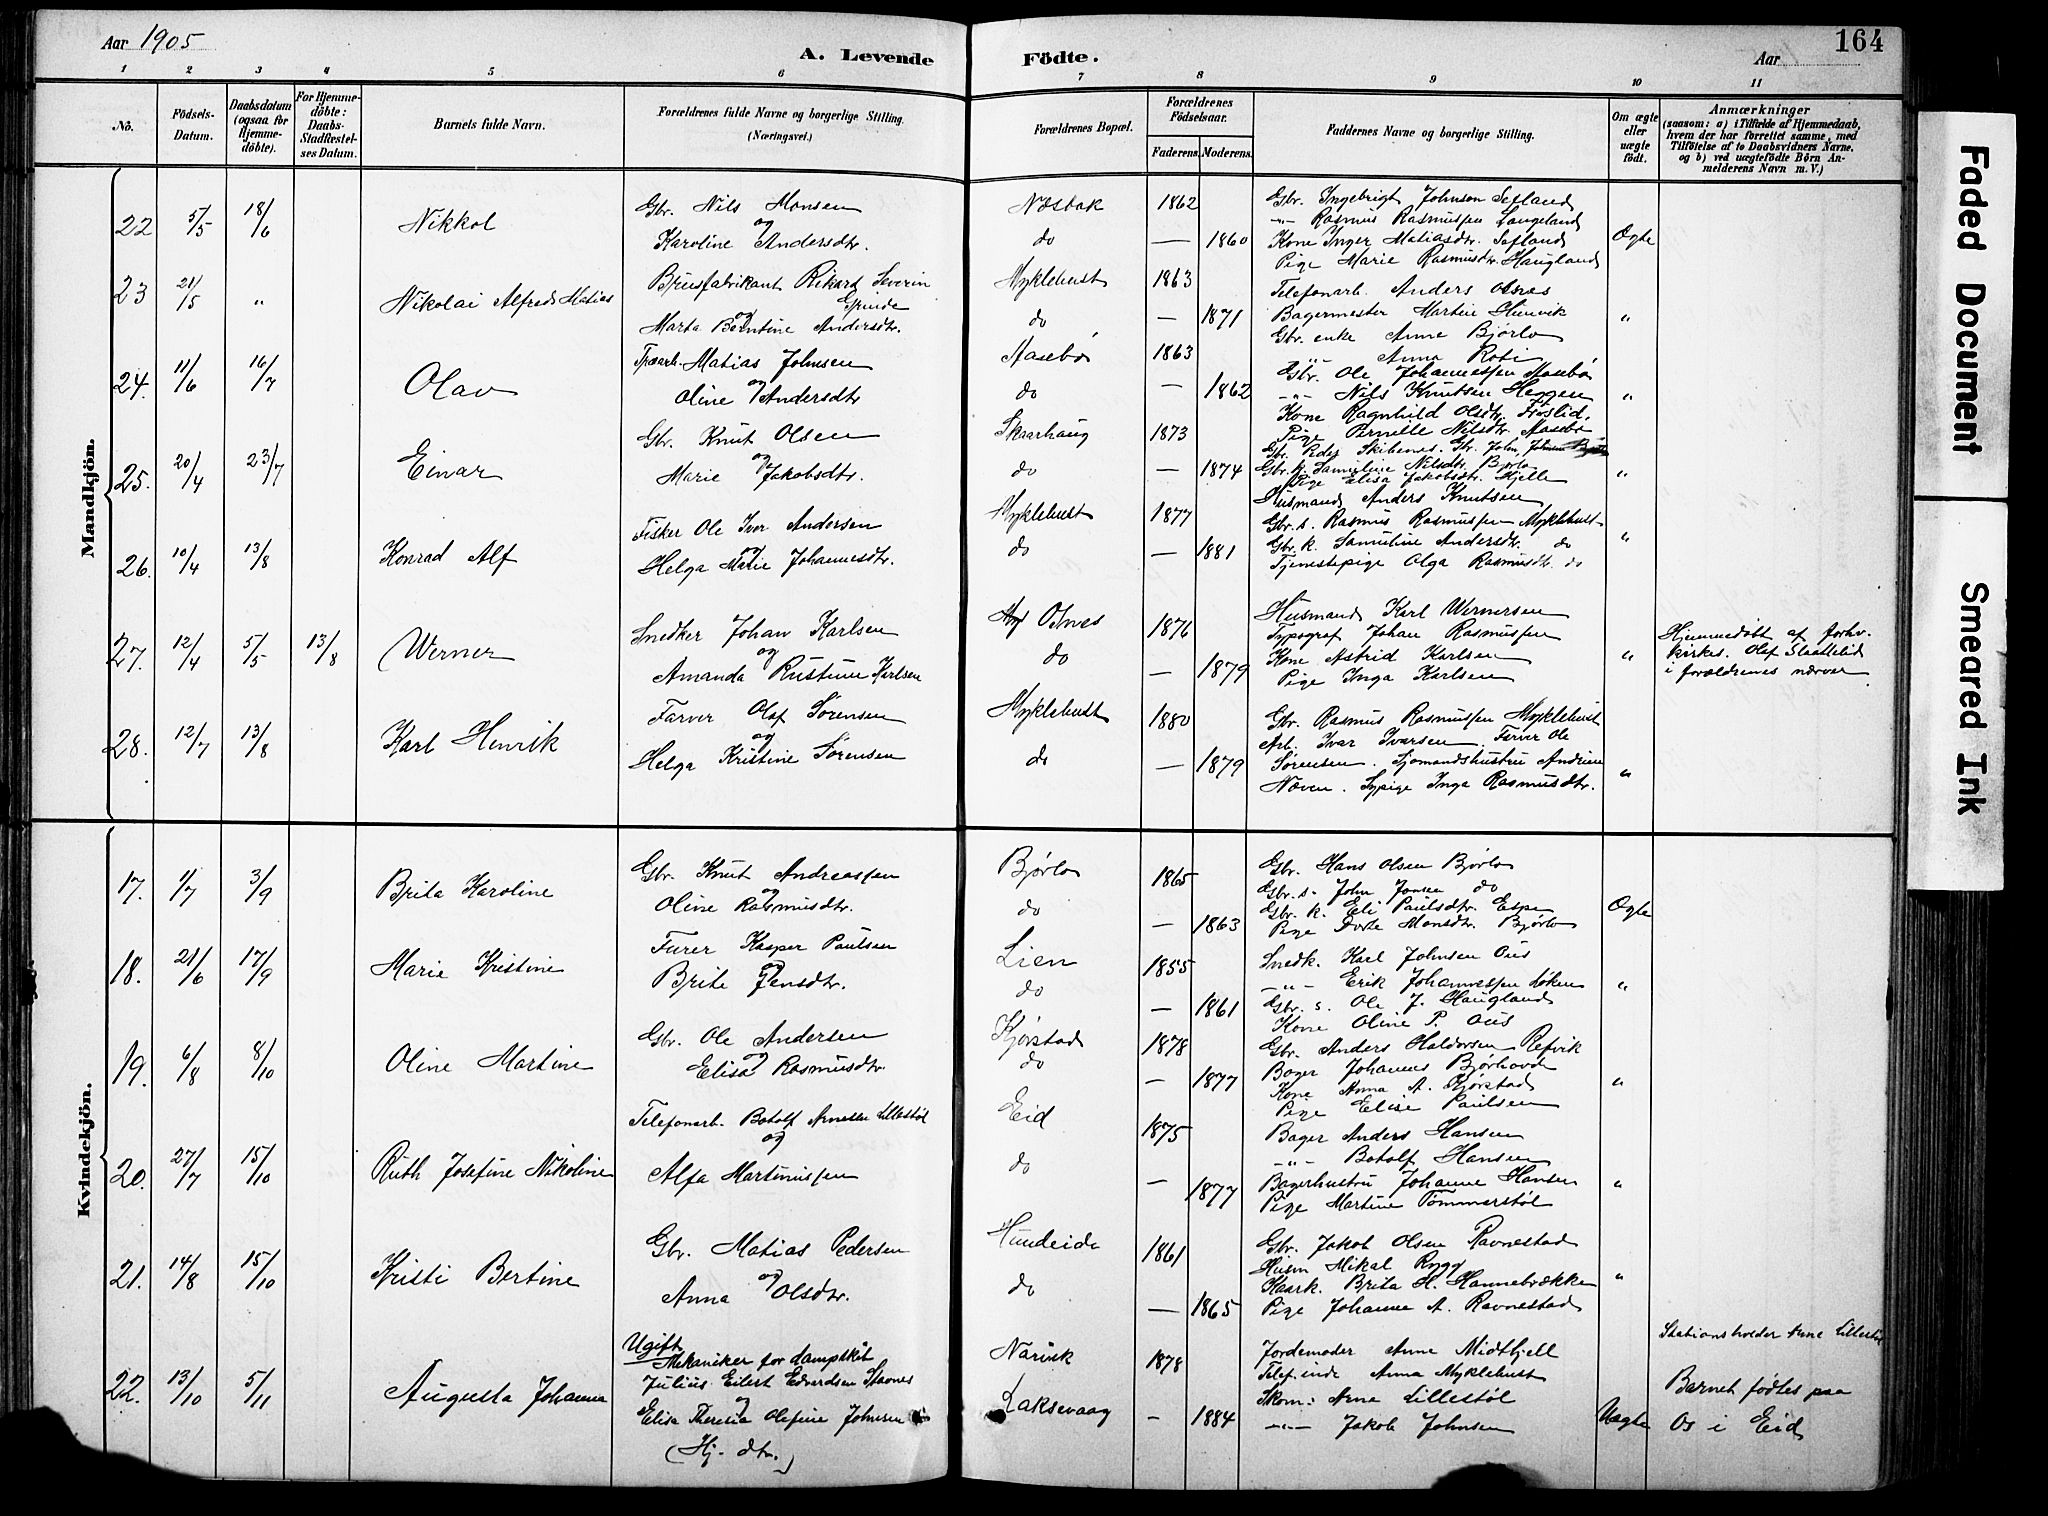 Aar 1905
A. Levende Födte.
Aar
164
1 2 3 4 5 6 7 8 9 10 11
No.
Födsels-Datum.
Daabsdatum (ogsaa for Hjemme-döbte).
For Hjemme-döbte: Daabs-Stadfæstel-ses Datum.
Barnets fulde Navn.
Forældrenes fulde Navne og borgerlige Stilling. (Næringsvei.)
Forældrenes Bopæl.
Forældrenes Födselsaar.
Faderens. Moderens.
Faddernes Navne og borgerlige Stilling.
Om ægte eller uægte födt.
Anmærkninger
(saasom: a) i Tilfælde af Hjemmedaab,
hvem der har forrettet samme, med
Tilföielse af to Daabsvidners Navne.
og b) ved uægtefödte Börn An-
melderens Navn m. V.)
Mandkjön.
22 5/5 18/6 Nikkol
Gbr. Nils Monsen
og
Karoline Andersdtr.
Næsbak 1862
do — 1860
Gbr. Ingebrigt Johnson Sefland
-"- Rasmus Rasmussen Langeland
Kone Inger Matiasdtr. Sefland
Pige Marie Rasmusdtr. Haugland
Ægte
23 21/5 " Nikolai Alfred Matias
Brusfabrikant Rikard Severin
Espinde
og
Marta Berntine Andersdtr.
Myklebust 1863
do — 1871
Telefonarb. Anders Osnes
Bagermester Martin Humvik
Gbr. enke Anne Bjørlo
-"- Anna Roti
"
24. 11/6 16/7 Olav
Træarb. Matias Johnsen
og
Oline Andersdtr
Aasebø 1863
do — 1862
Gbr. Ole Johannessen Aasebø
-"- Nils Knutsen Heggen
Kone Ragnhild Olsdtr. Froslid.
Pige Pernille Nilsdtr. Aasebø
"
25. 20/4 23/7 Einar
Gbr. Knut Olsen
og
Marie Jakobsdtr.
Skaarhaug 1873
do — 1874
Gbr. Peder Skibenes. Gbr. John Johnsen
Gbr. k. Samuline Nilsdtr. Bjørlo
Pige Elisa Jakobsdtr. Hjelle
"
26. 10/4 13/8 Konrad Alf
Fisker Ole Iver Andersen
og
Helga Marie Johannesdtr.
Myklebust 1877
do — 1881
Husmand Anders Knutsen
Gbr. s. Rasmus Rasmussen Myklebust
Gbr. k. Samuline Andersdtr. do
Tjenestepige Olga Rasmusdtr. do
"
27. 12/4 5/5 13/8 Werner
Snedker Johan Karlsen
og
Amanda Rustine Karlsen
Osnes 1876
do — 1879
Husmand Karl Wernersen
Typograf Johan Rasmussen
Kone Astrid Karlsen
Pige Inga Karlsen
"
Hjemmedøbt af forhv.
kirkes. Olef Slattelid
i forældrenes nærvær
28. 12/7 13/8 Karl Henrik
Farver Olaf Sørensen
og
Helga Kristine Sørensen
Myklebust 1880
do — 1879
Gbr. Rasmus Rasmussen Myklebust
Arb. Ivar Ivarsen. Farver Ole
Sørensen. Sjomandshustru Andrine
Næven. Sypige Inga Rasmusdtr.
"
Kvindekjön.
17. 1/7 3/9 Brita Karoline
Gbr. Knut Andreassen
og
Oline Rasmusdtr.
Bjørlo 1865
do — 1863
Gbr. Hans Olsen Bjørlo
Gbr. s. John Jonsen do
Gbr. k. Eli Paulsdtr. Espe
Pige Dorte Monsdtr. Bjørlo
Ægte
18. 21/6 17/9 Marie Kristine
Furer Kasper Paulsen
og
Brite Jensdtr.
Lien 1855
do — 1861
Snedk. Karl Johnsen Ous
-"- Erik Johannessen Løken
Gbr. s. Ole J. Haugland
Kone Oline P. Ous
"
19. 6/8 8/10 Oline Martine
Gbr. Ole Andersen
og
Elisa Rasmusdtr.
Kjørstad 1878
do — 1877
Gbr. Anders Haldorsen Refvik
Bager Johannes Bjørhovde
Kone Anna A. Kjørstad
Pige Elise Paulsen
"
20. 27/7 15/10 Ruth Josefine Nikoline
Telefonarb. Botolf Arnesen Lillestøl
og
Alfa Martinussen
Eid 1875
do — 1877
Bager Anders Hansen
-"- Botolf Hansen
Bagerhustru Johanne Hansen
Pige Martine Tømmerstøl
"
21. 14/8 15/10 Kristi Bertine
Gbr. Matias Pedersen
og
Anna Olsdtr.
Hundeide 1861
do — 1865
Gbr. Jakob Olsen Ravnestad
Husm Mikal Rygg
Kaark. Brita H. Hannebrække
Pige Johanne A. Ravnestad
"
22. 13/10 5/11 Augusta Johanna
Ugift
Mekaniker for dampskib
Julius Eilert Edvardsen Stavnes
og
Elisa Theresia Olefine Johnsen
(Hj. dtr.)
Narvik 1878
Laksevaag — 1884
Jordemoder Anne Midthjell
Telef.inde Anna Myklebust
Skom: Arne Lillestøl
-"- Jakob Johnsen
Uægte
Stationsholder Arne Lillestøl
Barnet fødtes paa
Os i Eid
Faded Document
Smeared Ink